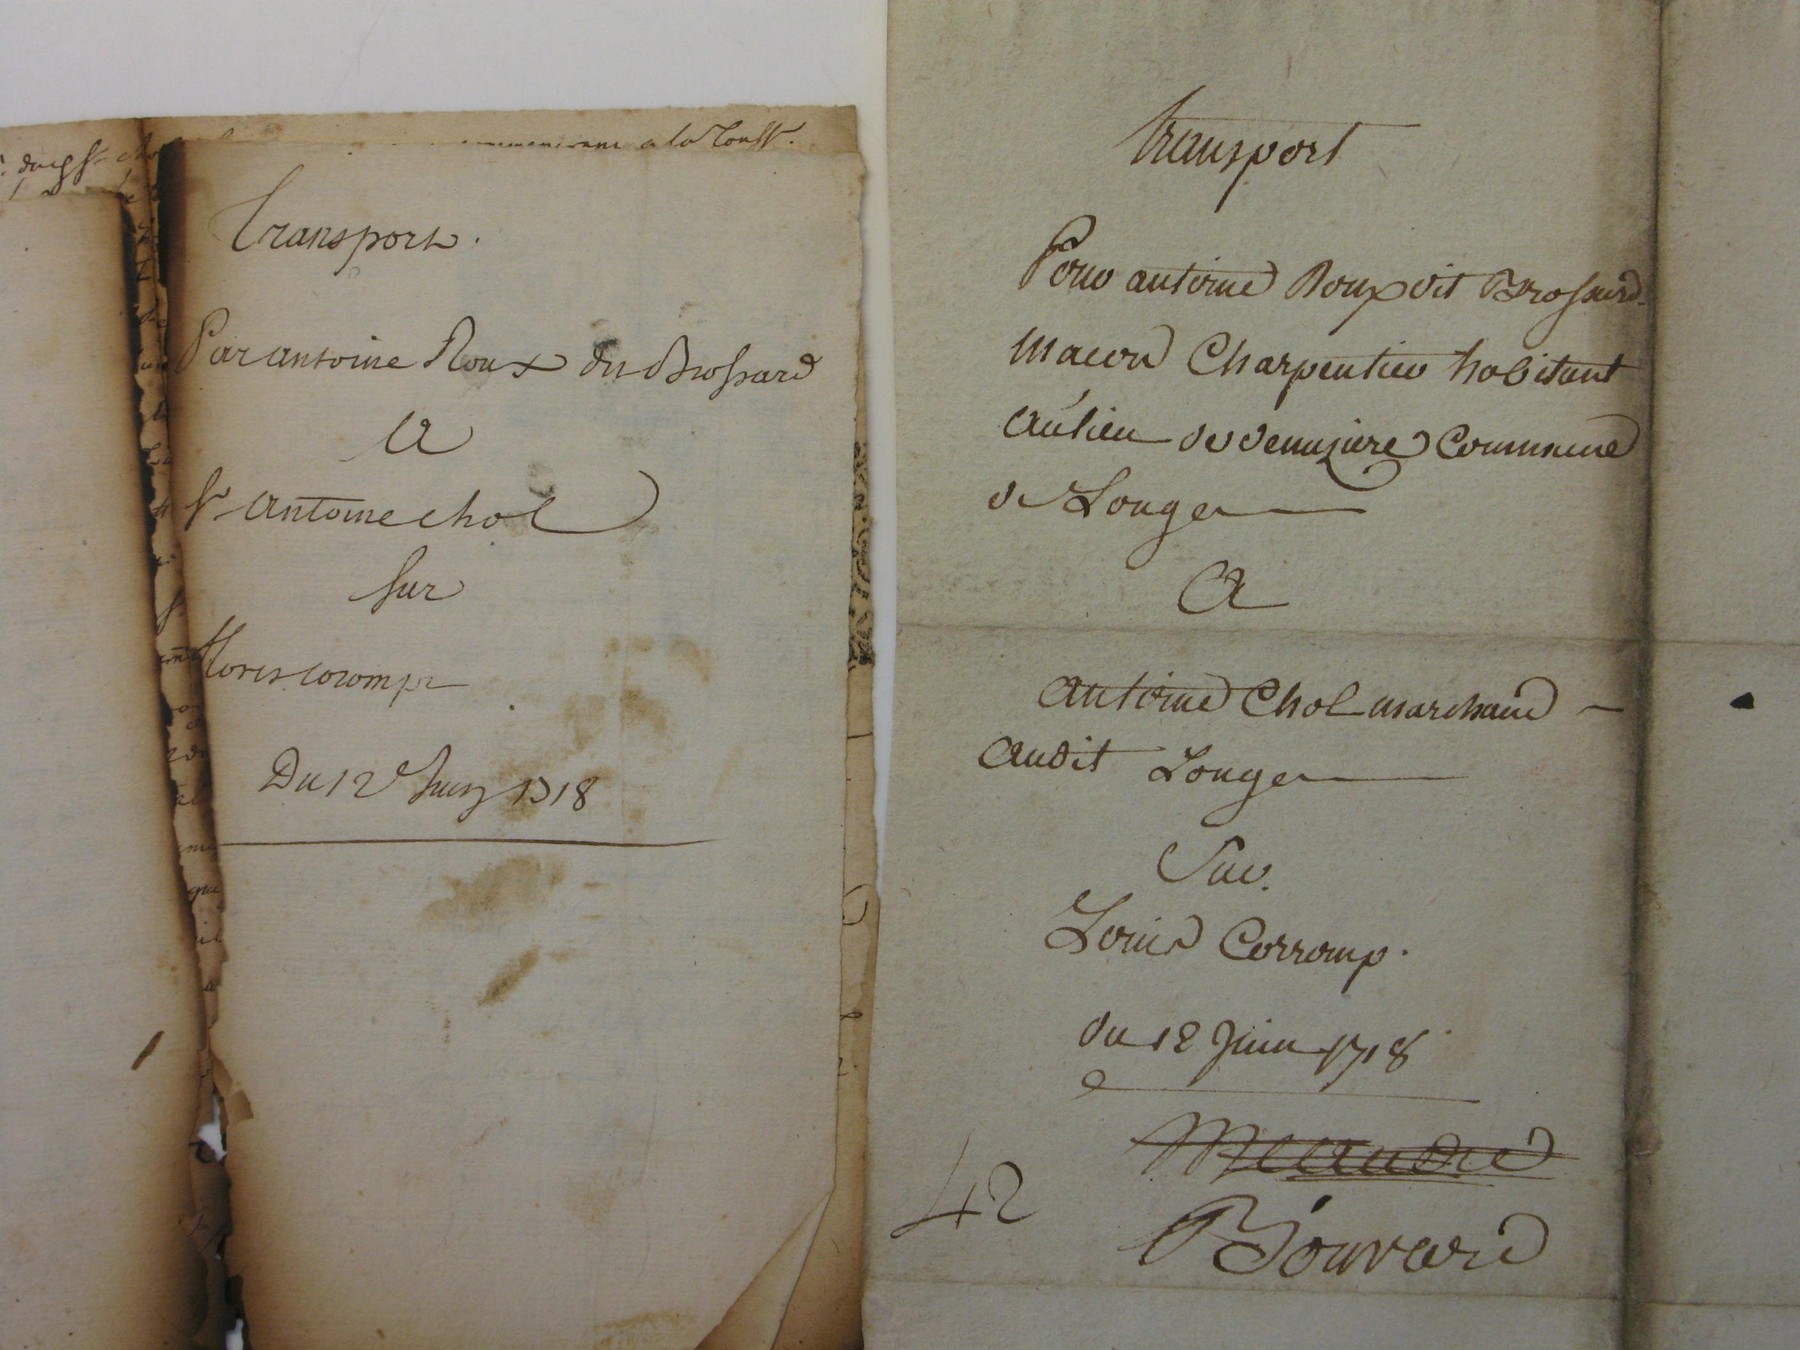 a la Touss.
Transport.
Par antoine Roux dit Brossard
A
Sr Antoine chol
sur
Corompt
Du 12e Juin 1718
Transport
Pour antoine Roux dit Brossard
Macon Charpentier habitant
Au lieu de Commune
de Longes
A
Antoine Chol marchand
Audit Longes
Sur
Louis Corromp.
du 12 Juin 1718
42
Bouvard